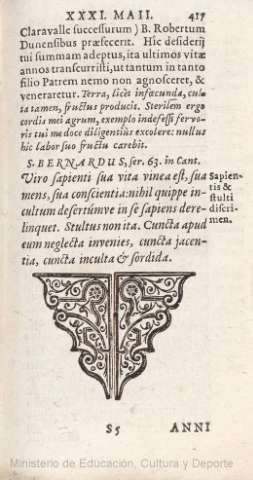 XXXI. MAII. 417
Claravalle successurum) B. Robertum
Dunensibus præfecerit. Hic desiderij
tui summam adeptus, ita ultimos vitæ
annos transcurristi, ut tantum in tanto
filio Patrem nemo non agnosceret, &
veneraretur. Terra, licèt infœcunda, cul-
ta tamen, fructus producit. Sterilem ergo
cordis mei agrum, exemplo indefessi fervo-
ris tui me doce diligentiùs excolere: nullus
hic labor suo fructu carebit.
S. BERNARDUS, ser. 63. in Cant.
Viro sapienti sua vita vinea est, sua
mens, sua conscientia: nihil quippe in-
cultum desertúmve in se sapiens dere-
linquet. Stultus non ita. Cuncta apud
eum neglecta invenies, cuncta jacen-
tia, cuncta inculta & sordida.
Sapien-
tis &
stulti
discri-
men.
S5 ANNI
Ministerio de Educación, Cultura y Deporte